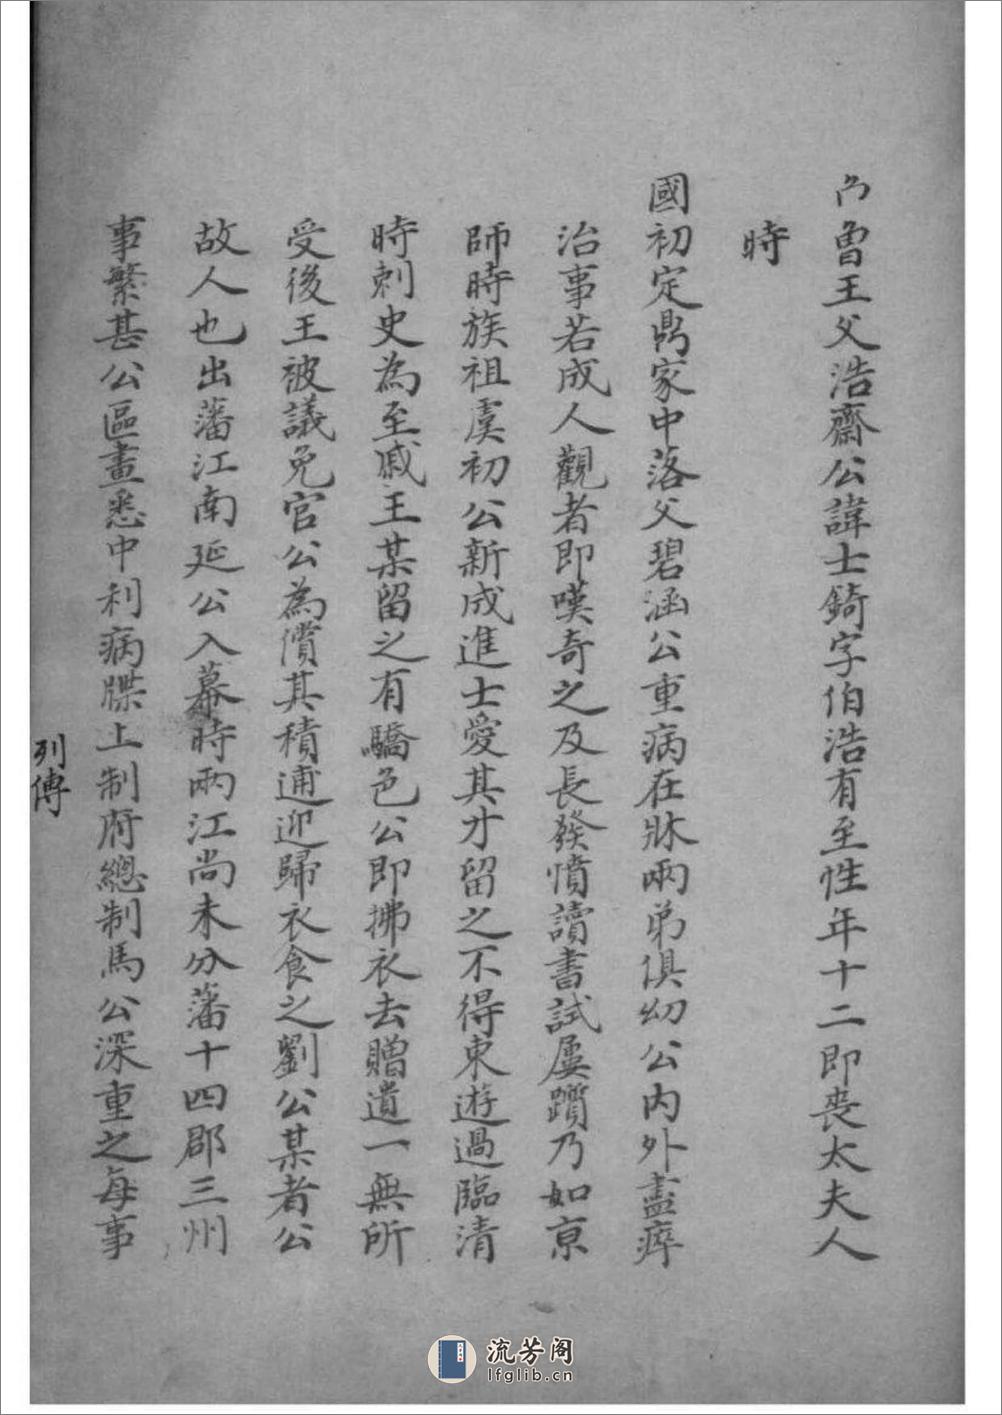 曾王父浩齋公諱士錡字伯浩有至性年十二即喪太夫人
時
國初定鼎家中落父碧涵公重病在牀兩弟俱幼公內外盡瘁
治事若成人觀者即嘆奇之及長發憤讀書試屢躓乃如京
師時族祖虞初公新成進士愛其才留之不得東遊過臨清
時刺史為至戚王某留之有驕色公即拂衣去贈遺一無所
受後王被議免官公為償其積逋迎歸衣食之劉公某者公
故人也出藩江南延公入幕時兩江尚未分藩十四郡三州
事繁甚公區畫悉中利病牒上制府總制馬公深重之每事
列傳
流芳阁
lfglib.cn